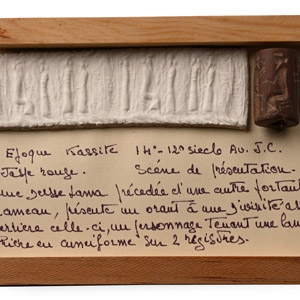 Epoque Kassite 14e-12e siecle Av. J.C.
Jaspe rouge. Scène de présentation.
une deesse Lama précédée d'une autre portant
rameau, présente un orant à une divinité as
derrière celle-ci, un personnage tenant une lan
en cuneiforme sur 2 registres.